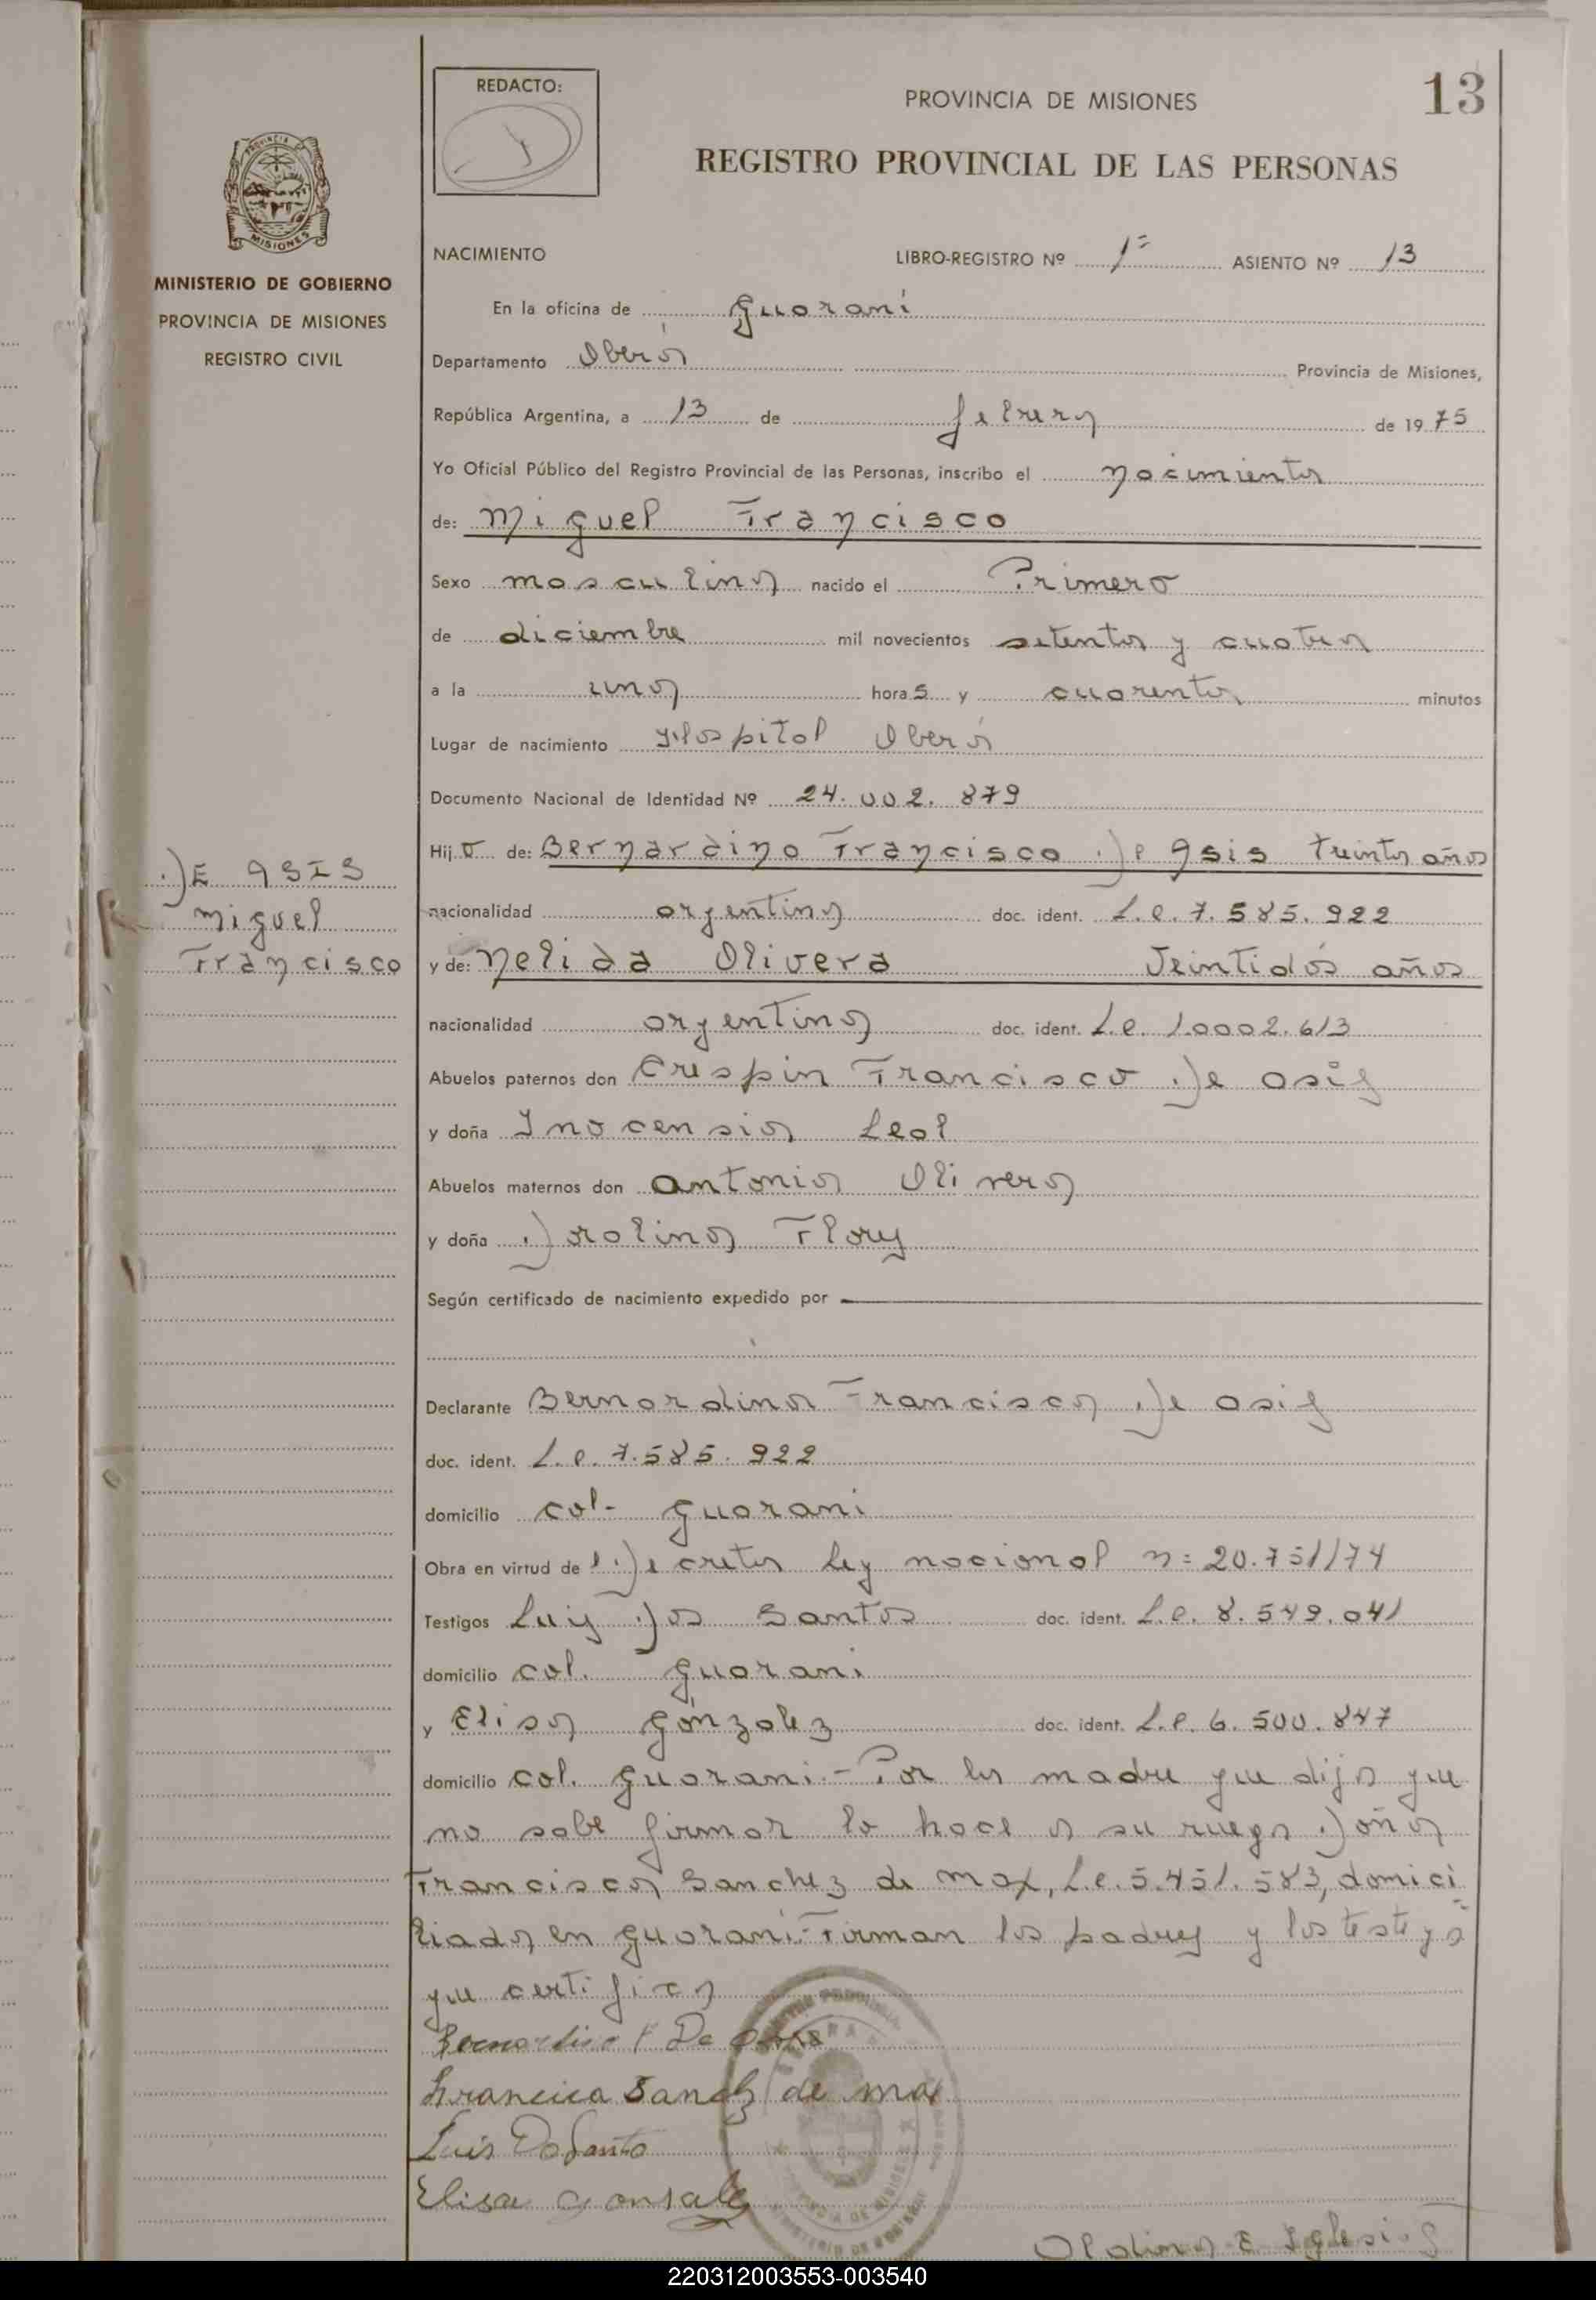 13
REDACTO:
PROVINCIA DE MISIONES
REGISTRO PROVINCIAL DE LAS PERSONAS
MISIONES
MINISTERIO DE GOBIERNO
PROVINCIA DE MISIONES
REGISTRO CIVIL
NACIMIENTO LIBRO-REGISTRO Nº 1º ASIENTO Nº 13
En la oficina de Guarani
Departamento Oberá Provincia de Misiones,
República Argentina, a 13 de febrero de 1975
Yo Oficial Público del Registro Provincial de las Personas, inscribo el nacimiento
de: Miguel Francisco
Sexo masculino nacido el Primero
de diciembre mil novecientos setenta y cuatro
a la una hora s y cuarenta minutos
Lugar de nacimiento Hospital Oberá
Documento Nacional de Identidad Nº 24.002.879
Hijo de: Bernardino Francisco De Asis treinta años
DE ASIS
Miguel
Francisco
nacionalidad argentino doc. ident. L.e. 7.585.922
y de: Nelida Olivera Veintidós años
nacionalidad argentina doc. ident. L.e. 10002.613
Abuelos paternos don Crespin Francisco De asis
y doña Inocensia Leal
Abuelos maternos don Antonio Olivera
y doña Dorolina Flory
Según certificado de nacimiento expedido por
Declarante Bernardino Francisco De asis
doc. ident. L.e. 7.585.922
domicilio col- Guarani
Obra en virtud de l Decreto Ley nacional n= 20.751/74
Testigos Luis Dos Santos doc. ident. L.e. 8.549.041
domicilio col. Guarani
y Elisa Gonzalez doc. ident. L.e. 6.500.847
domicilio col. Guarani.- Por la madre que dijo que
no sabe firmar lo hace a su ruego Doña
Francisca Sanchez de Max, L.e. 5.451.583, domici
liada en Guarani.- Firman los padres y los testigos
que certifico
Bernardino F De asis
Francica Sanchz de Max
Luis Do Santo
Elisa Gonsalez
Iglesias
220312003553-003540